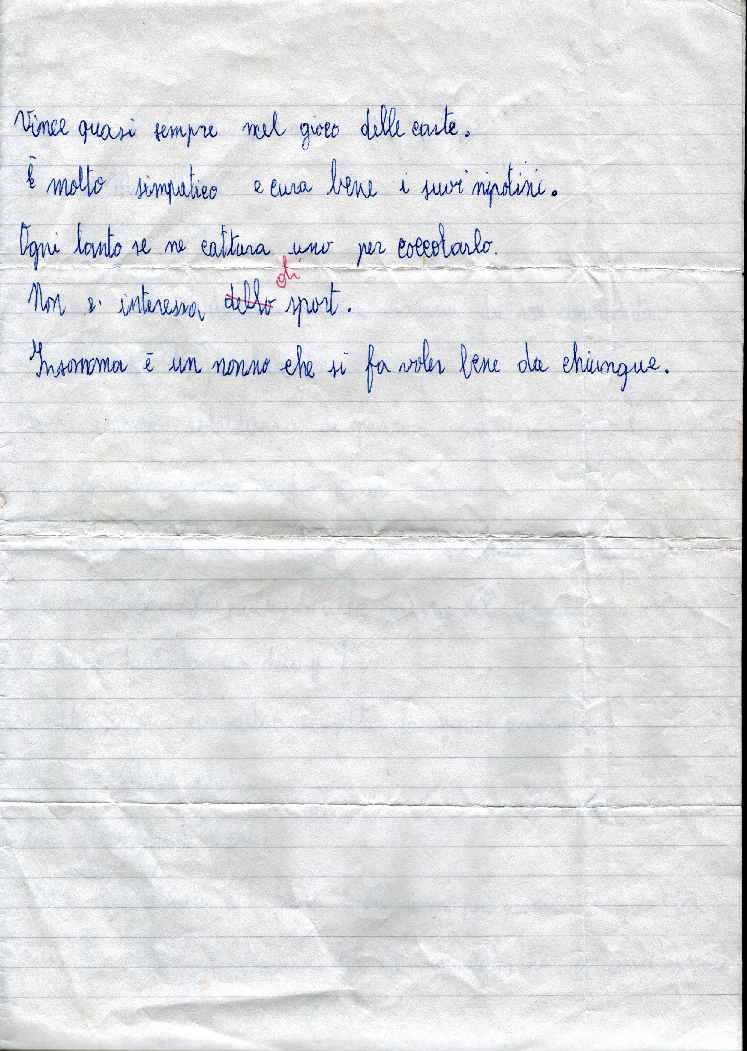 Vince quasi sempre nel gioco delle carte.
È molto simpatico e cura bene i suoi nipotini.
Ogni tanto se ne cattura uno per coccolarlo.
di
Non si interessa dello sport.
Insomma è un nonno che si fa voler bene da chiunque.